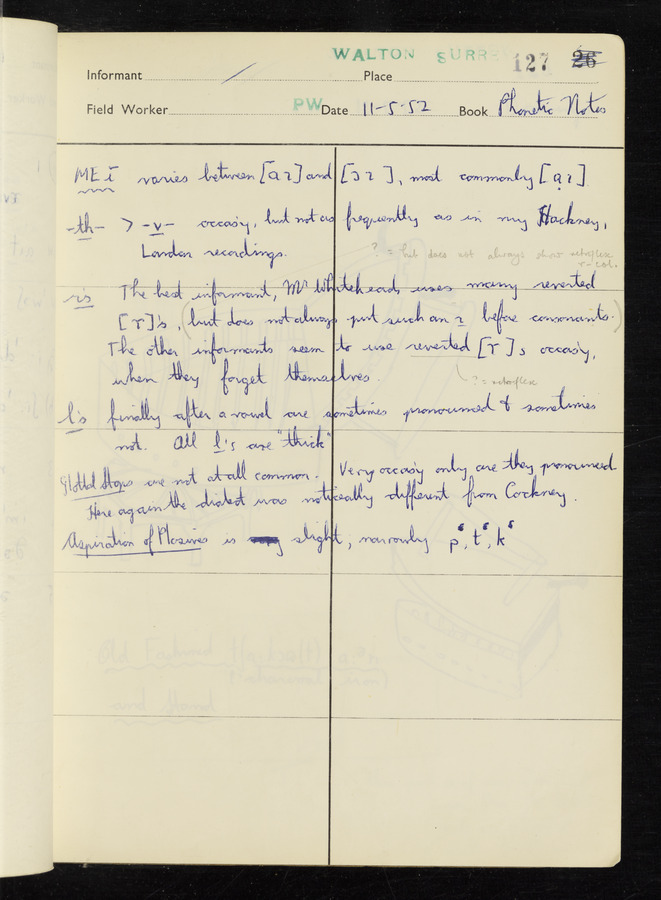 WALTON SURREY 127 26
Informant / Place
Field Worker PW Date 11-5-52 Book Phonetic Notes
ME ī varies between [aɪ] and [ɔɪ], most commonly [ɑɪ]
-th- > -v- occas'y, but not as frequently as in my Hackney,
London recordings.
? = but does not always show retroflex
r-col.
r's The best informant, Mr Whitehead, uses many reverted
[r]'s, (but does not always put such an r before consonants.)
The other informants seem to use reverted [r]s occas'y,
when they forget themselves.
? = retroflex
l's finally after a vowel are sometimes pronounced & sometimes
not. All l's are "thick"
Glottal Stops are not at all common. Very occas'y only are they pronounced
Here again the dialect was noticeably different from Cockney.
Aspiration of Plosives is slight, narrowly pʻ, tʻ, kʻ